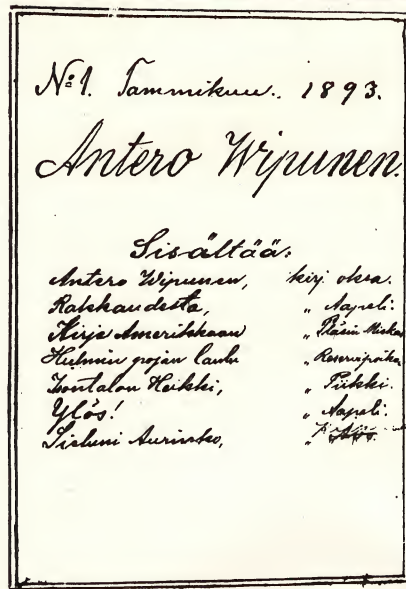 No: 1. Tammikuu. 1893.
Antero Wipunen.
Sisältää:
Antero Wipunen, kirj. oksa.
Rakkaudesta, " Aapeli.
Kirje Amerikkaan "
Hulmin pojan laulu " Reservipoika
Isontalon Heikki, " Piikki.
Ylös! " Aapeli.
Sieluni Aurinko, "